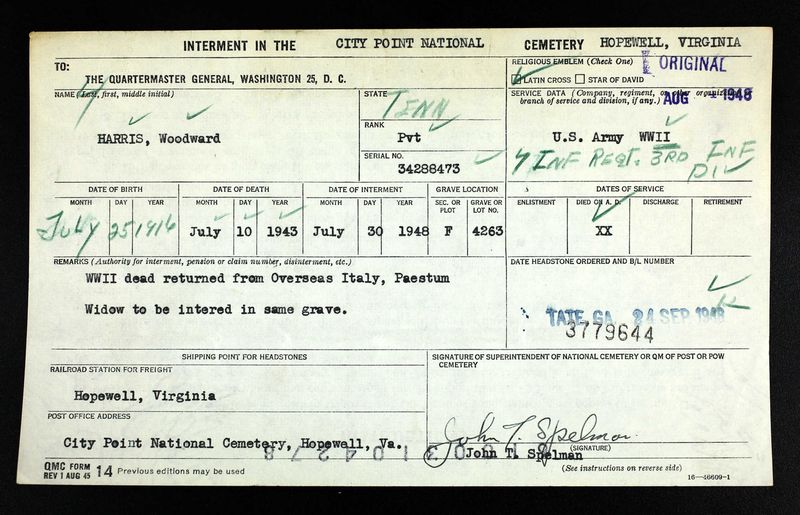 INTERMENT IN THE CITY POINT NATIONAL CEMETERY HOPEWELL, VIRGINIA
TO:
THE QUARTERMASTER GENERAL, WASHINGTON 25, D. C.
RELIGIOUS EMBLEM (Check One)
LATIN CROSS STAR OF DAVID
ORIGINAL
NAME (Last, first, middle initial)
HARRIS, Woodward
STATE
TENN
RANK
Pvt
SERIAL NO.
34288473
SERVICE DATA (Company, regiment, or other organization, branch of service and division, if any.)
AUG 1948
U.S. Army WWII
7 INF REGT. 3RD INF
DIV
DATE OF BIRTH
MONTH DAY YEAR
July 25 1916
DATE OF DEATH
MONTH DAY YEAR
July 10 1943
DATE OF INTERMENT
MONTH DAY YEAR
July 30 1948
GRAVE LOCATION
SEC. OR PLOT GRAVE OR LOT NO.
F 4263
DATES OF SERVICE
ENLISTMENT DIED ON A. D. DISCHARGE RETIREMENT
XX
REMARKS (Authority for interment, pension or claim number, disinterment, etc.)
WWII dead returned from Overseas Italy, Paestum
Widow to be intered in same grave.
DATE HEADSTONE ORDERED AND B/L NUMBER
TATE, GA. 24 SEP 1948
3779644
SHIPPING POINT FOR HEADSTONES
RAILROAD STATION FOR FREIGHT
Hopewell, Virginia
POST OFFICE ADDRESS
City Point National Cemetery, Hopewell, Va.
SIGNATURE OF SUPERINTENDENT OF NATIONAL CEMETERY OR QM OF POST OR POW CEMETERY
John T. Spelman
(SIGNATURE)
John T. Spelman
(See instructions on reverse side)
QMC FORM
REV 1 AUG 45 14 Previous editions may be used
16—46609-1